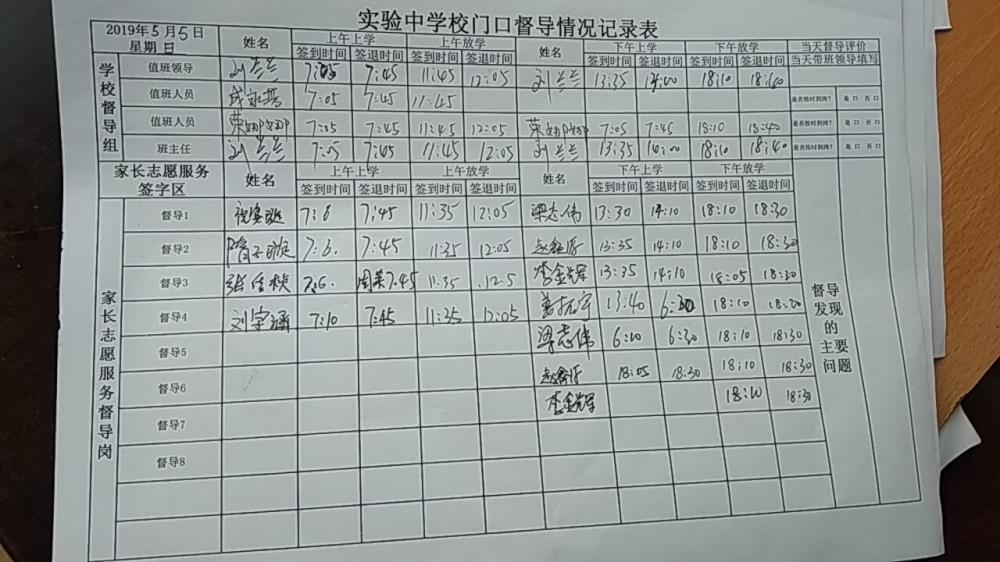 实验中学校门口督导情况记录表
2019年5月5日 星期日 姓名 上午上学 上午放学 姓名 下午上学 下午放学 当天督导评价
签到时间 签退时间 签到时间 签退时间 签到时间 签退时间 签到时间 签退时间 当天带班领导填写
学校督导组
值班领导 刘兰兰 7:05 7:45 11:45 12:05 刘兰兰 13:35 14:00 18:10 18:40
值班人员 7:05 7:45 11:45 是否按时到岗? 是 口 否 口
值班人员 荣娜娜 7:05 7:45 11:45 12:05 荣娜娜 7:05 7:45 18:10 18:40 是否按时到岗? 是 口 否 口
班主任 刘兰兰 7:05 7:45 11:45 12:05 刘兰兰 13:35 14:00 18:10 18:40 是否按时到岗? 是 口 否 口
家长志愿服务签字区 姓名 上午上学 上午放学 姓名 下午上学 下午放学
签到时间 签退时间 签到时间 签退时间 签到时间 签退时间 签到时间 签退时间
家长志愿服务督导岗
督导1 7:6 7:45 11:35 12:05 梁志伟 13:30 14:10 18:10 18:30
督导2 7:6. 7:45 11:35 12:05 13:35 14:10 18:10 18:30
督导3 7:6. 7:45 11:35 12:5 李金辉 13:35 14:10 18:05 18:30
督导4 刘宇涵 7:10 7:45 11:35 12:05 13:40 6:30 18:10
督导5 梁志伟 6:20 6:30 18:10 18:30
督导6 18:05 18:30 18:10 18:30
督导7 李金辉 18:10 18:30
督导8
督导发现的主要问题